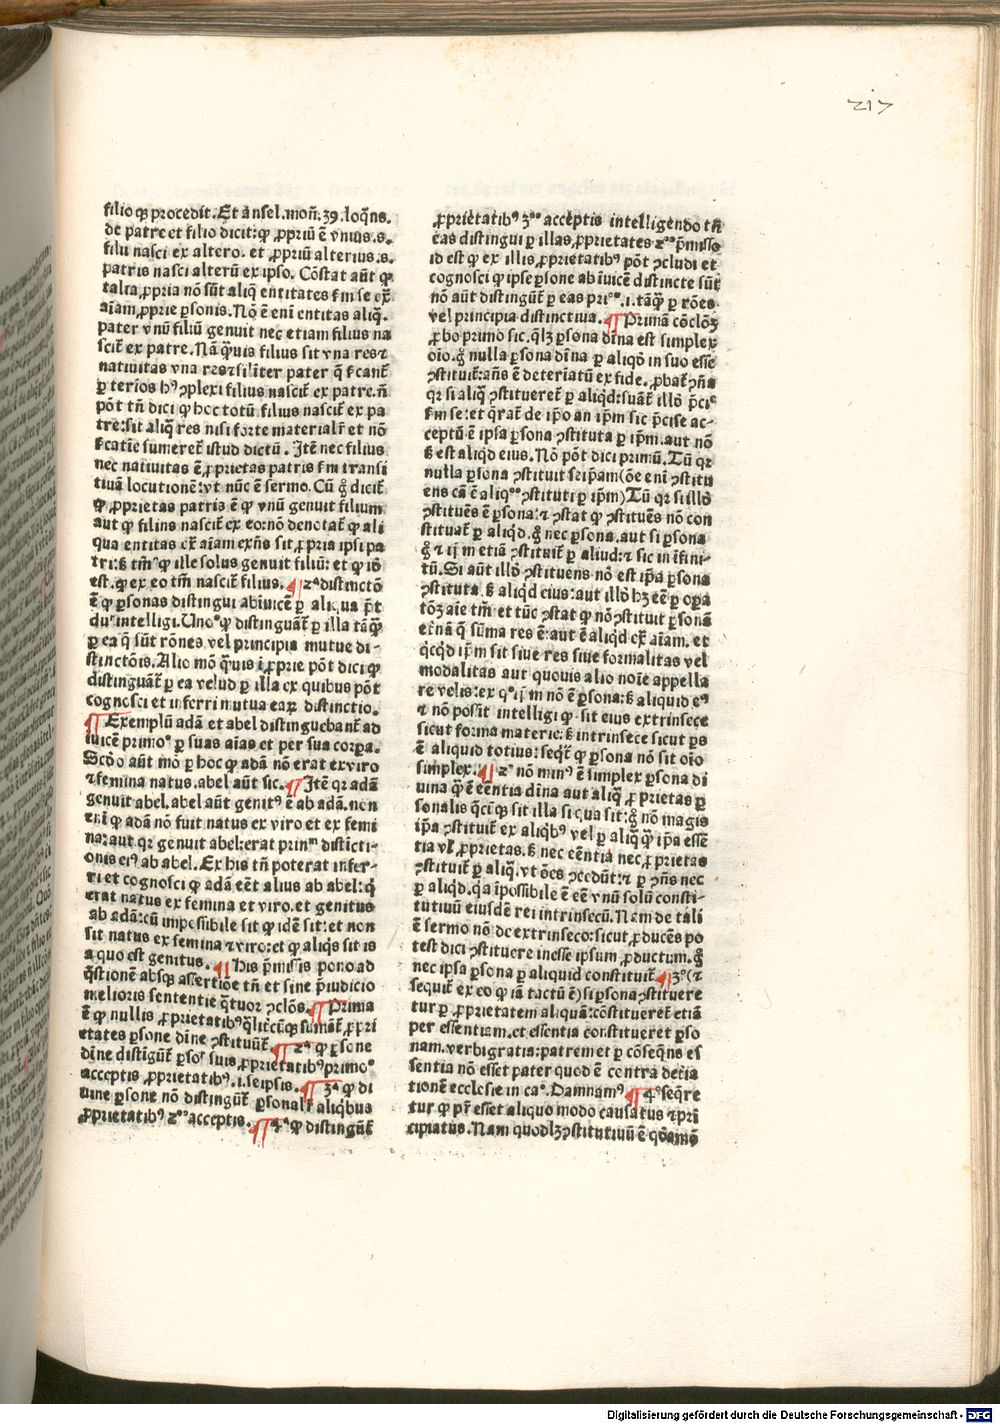 217
filio qꝫ procedit. Et ansel. moñ. 39. loq̃ns.
de patre et filio dicit: ꝙ ꝓpriũ ẽ vnius .s.
filii nasci ex altero. et ꝓpriũ alterius .s.
patris nasci alterũ ex ipso. Cõstat aũt ꝙ
talia ꝓpria nõ sũt aliq̃ entitates
aĩam ꝓprie ꝑsonis. Nõ ẽ enĩ entitas aliq̃.
pater vnũ filiũ genuit nec etiam filius na
scit̃ ex patre. Nã q̃uis filius sit vna res ⁊
natiuitas vna res ⁊ silĩter pater
ꝑ terĩos hꝰ ꝯplexi filius nascit̃ ex patre. ñ
põt tñ dici ꝙ hoc totũ. filius nascit̃ ex pa
tre: sit aliq̃ res nisi forte materialr̃ et nõ
sumeret̃ istud dictũ. Itẽ nec filius
nec natiuitas ẽ ꝓprietas patris transi
tiuã locutionẽ: vt nũc ẽ sermo. Cũ g̊ dicit̃
ꝙ ꝓprietas patris ẽ ꝙ vnũ genuit filium
aut ꝙ filius nascit̃ ex eo: nõ denotat̃ ꝙ ali
qua entitas aĩam exñs sit ꝓpria ipsi pa
tri: tm̃ ꝙ ille solus genuit filiũ: et ꝙ iõ
est. ꝙ ex eo tm̃ nascit̃ filius. ¶ 2ᵃ distinctõ
ẽ ꝙ ꝑsonas distingui abĩuicẽ ꝑ aliqua põt
intelligi. Unoᵒ ꝙ distinguãt̃ ꝑ illa tãq̃ꝫ
ꝑ ea q̃ sũt rõnes vel principia mutue di-
stinctõis. Alio mõ q̃uis ĩꝓprie põt dici ꝙ
distinguãt̃ ꝑ ea vel ꝑ illa ex quibus põt
cognosci et inferri mutua eaꝝ distinctio.
¶ Exemplũ adã et abel distinguebant̃ ad
ĩuicẽ primoᵒ ꝑ suas aĩas et per sua corpa.
Scdo aũt mõ ꝑ hoc ꝙ adã nõ erat ex viro
⁊ femina natus. abel aũt sic. ¶ Itẽ qꝛ adã
genuit abel. abel aũt genitꝰ ẽ ab adã. non
enĩ ꝙ adã nõ fuit natus ex viro et ex femi
na: aut qꝛ genuit abel: erat distĩcti-
onis eiꝰ ab abel. Ex his tñ poterat infer-
ri et cognosci ꝙ adã eẽt alius ab abel: q̃
erat natus ex femina et viro. et genitus
ab adã: cũ impossibile sit ꝙ idẽ sit: et non
sit natus ex femina ⁊ viro: et ꝙ aliq̃s sit is
a quo est genitus. ¶ His p̃missis pono ad
q̃stionẽ absqꝫ assertiõe tñ et sine p̃iudicio
melioris sententie q̃tuor ꝯclões. ¶ Prima
ẽ ꝙ nullis ꝓprietatibꝰ q̃litcũqꝫ sumãt̃ ꝓpri
etates ꝑsone dĩne ꝯstituũt̃. ¶ 2ᵃ ꝙ ꝑsone
dĩne distigũt̃ suis ꝓprietatibꝰ primoᵒ
acceptis ꝓprietatibꝰ .i. seipsis. ¶ 3ᵃ ꝙ di
uine ꝑsone nõ distingũt̃ ꝑsonalr̃ aliq̃bus
ꝓprietatibꝰ 2ᵒᵒ acceptis. ¶ 4ᵃ ꝙ distingũt̃
ꝓprietatibꝰ 3ᵒᵒ acceptis intelligendo tñ
eas distingui ꝑ illas ꝓprietates 2ᵒᵒ p̃misso
id est ꝙ ex illis ꝓprietatibꝰ põt ꝯcludi et
cognosci ꝙ ipse ꝑsone ab ĩuicẽ distincte sũt
nõ aũt distingũt̃ ꝑ eas priᵒᵒ .i. tãq̃ꝫ ꝑ rões
vel principia distinctiua. ¶ Primã cõclõꝫ
ꝓbo primo sic. q̃lꝫ ꝑsona dĩna est simplex
oĩo. g̊ nulla ꝑsona dĩna ꝑ aliqõ in suo esse
ꝯstituit̃: añs ẽ deteriatũ ex fide. ꝓbat̃ ꝯña
qꝛ si aliq̃ ꝯstitueret̃ ꝑ aliqd: suãt̃ illõ
se: et q̃rat̃ de ip̃o an ip̃m sic p̃cise ac-
ceptũ ẽ ipsa ꝑsona ꝯstituta ꝑ ip̃m. aut nõ
est aliqd eius. Nõ põt dici primũ. Tũ qꝛ
nulla ꝑsona ꝯstituit seip̃am (õe enĩ ꝯstitu
ens cã ẽ aliqᵒᵒ ꝯstituti ꝑ ip̃m) Tũ qꝛ si illõ
ꝯstituẽs ẽ ꝑsona: ⁊ ꝯstat ꝙ ꝯstituẽs nõ con
stituat̃ ꝑ aliqd. g̊ nec ꝑsona. aut si ꝑsona
etiã ꝯstituit̃ ꝑ aliud: ⁊ sic in ĩfini-
tũ. Si aũt illõ ꝯstituens nõ est ip̃a ꝑsona
ꝯstituta aliq̃d eius: aut illõ hꝫ eẽ ꝑ opa
tõꝫ aĩe tm̃ et tũc ꝯstat ꝙ nõ ꝯstituit ꝑsonã
et̃nã q̃ sũma res ẽ: aut ẽ aliqd ex̃ aĩam. et
q̃cqd ip̃m sit siue res siue formalitas vel
modalitas aut quouis alio noĩe appella
re velis: ex nõ ẽ ꝑsona: aliquid
⁊ nõ possit intelligi ꝙ sit eius extrinsece
sicut forma materie: intrinsece sicut
ẽ aliquid totius: seqt̃ ꝙ ꝑsona nõ sit oĩo
simplex. ¶ 2ᵒ nõ minꝰ ẽ simplex ꝑsona di
uina q̃ꝫ ẽ eẽntia dĩna aut aliq̃ ꝓprietas ꝑ
sonalis q̃cũqꝫ sit illa si qua sit: g̊ nõ magis
ip̃a ꝯstituit̃ ex aliq̃bꝰ vel ꝑ aliq̃ q̃ꝫ ip̃a essẽ
tia vl̃ ꝓprietas. nec eẽntia nec ꝓprietas
ꝯstituit̃ ꝑ aliq̃. vt oẽs ꝯcedũt: ⁊ ꝑ ꝯñs nec
ꝑ aliqd. q̃a ĩpossibile ẽ eẽ vnũ solũ consti-
tutiuũ eiusdẽ rei intrinsecũ. Nam de tali
ẽ sermo nõ de extrinseco: sicut ꝓducẽs po
test dici ꝯstituere inesse ipsum ꝓductum. g̊
nec ipsa ꝑsona ꝑ aliquid constituit̃. ¶ 3ᵒ (⁊
sequit̃ ex eo ꝙ iã tactũ ẽ) si ꝑsona ꝯstituere
tur ꝑ ꝓprietatem aliquã: cõstitueret̃ etiã
per essentiam. et essentia constitueret ꝑso
nam. verbi gratia: patrem et ꝑ cõseq̃ns es
sentia nõ esset pater quod ẽ contra decla
tionẽ ecclesie in caᵒ. Damnamꝰ. ¶ 4ᵒ seq̃re
tur ꝙ pr̃ esset aliquo modo causatus ⁊ pri
cipiatus. Nam quodlꝫ ꝯstitutiuũ ẽ
Digitalisierung gefördert durch die Deutsche Forschungsgemeinschaft - DFG